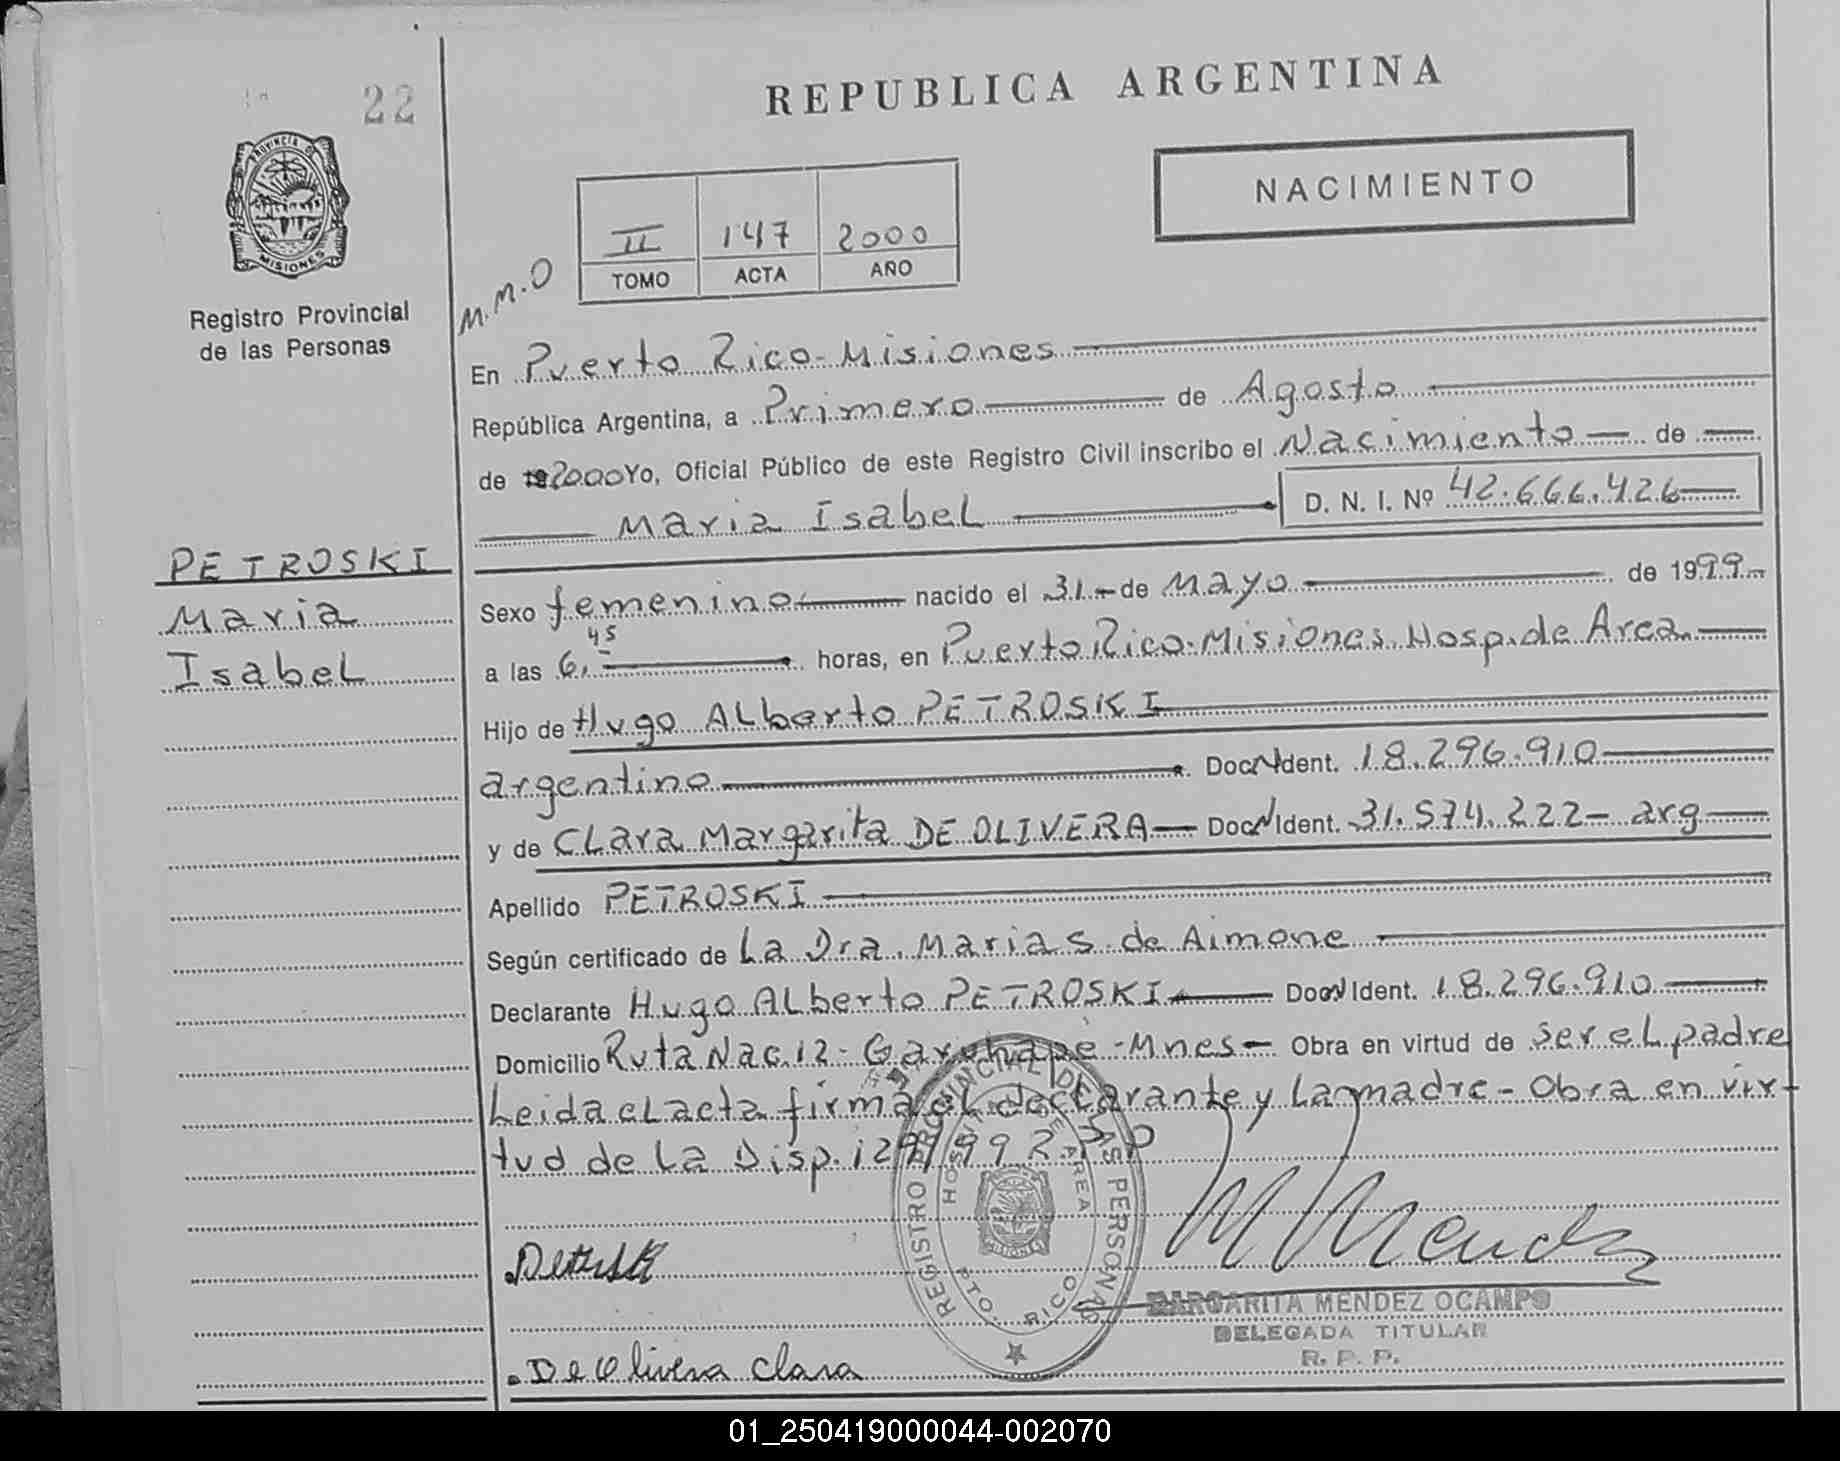 22
REPUBLICA ARGENTINA
PROVINCIA DE
MISIONES
Registro Provincial
de las Personas
II 147 2000
TOMO ACTA AÑO
NACIMIENTO
M.M.O
En Puerto Rico-Misiones
República Argentina, a Primero de Agosto
de 192000 Yo, Oficial Público de este Registro Civil inscribo el Nacimiento de
Maria Isabel D. N. I. Nº 42.666.426
PETROSKI
Maria
Isabel
Sexo femenino nacido el 31 de Mayo de 1999
a las 6,45 horas, en Puerto Rico-Misiones Hosp. de Area
Hijo de Hugo Alberto PETROSKI
argentino Doc N Ident. 18.296.910
y de Clara Margarita DE OLIVERA Doc N Ident. 31.574.222 - arg
Apellido PETROSKI
Según certificado de La Dra. Maria S. de Aimone
Declarante Hugo Alberto PETROSKI Doc N Ident. 18.296.910
Domicilio Ruta Nac. 12 - Garuhape - Mnes - Obra en virtud de ser el padre
Leida el acta firma el declarante y La madre - Obra en vir-
tud de La Disp. 12 992
REGISTRO PROVINCIAL DE LAS PERSONAS
HOSPITAL DE AREA
MISIONES
PTO. RICO
M Mendez
MARGARITA MENDEZ OCAMPO
DELEGADA TITULAR
R. P. P.
De Olivera Clara
01_250419000044-002070